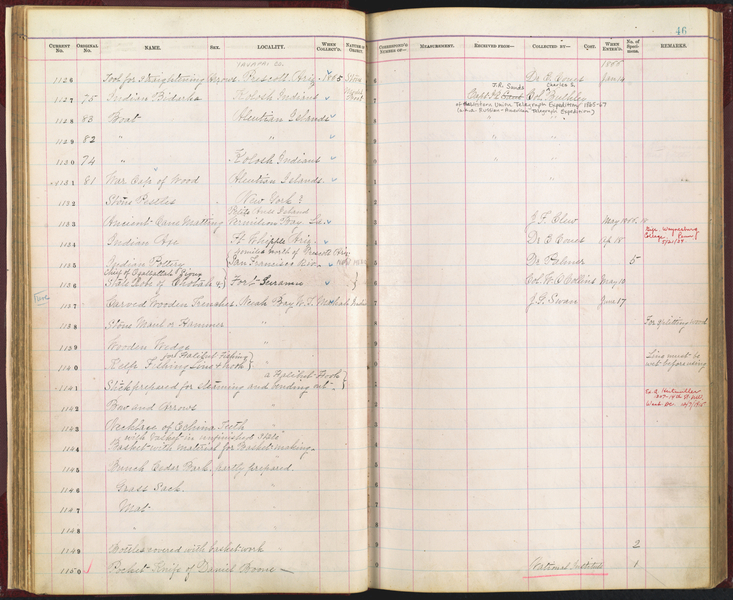 46
CURRENT NO. ORIGINAL NO. NAME. SEX. LOCALITY. WHEN COLLECT'D. NATURE OF OBJECT. CORRESPOND'G NUMBER OF— MEASUREMENT. RECEIVED FROM— COLLECTED BY— COST. WHEN ENTER'D. No. of Specimens. REMARKS.
YAVAPAI CO. 1866
1126 Tool for Straightening Arrows. Prescott Ariz. 1865 Stone 6 Dr. E. Coues Jan
J.R. Sands Charles S.
1127 75 Indian Bidarka Kolosh Indians " 7 Capt. Col. Bulkley
of Western Union Telegraph Expedition 1865-67
(a.k.a. Russian-American Telegraph Expedition)
1128 83 Boat Aleutian Islands " 8
1129 82 " " " 9
1130 74 " Kolosh Indians " 0
1131 81 War Cap of Wood Aleutian Islands. " 1
1132 Stone Pestles New York? 2
Petite Anse Island
1133 Ancient Cane Matting Vermilion Bay. La. " 3 J. F. Cleu May
1134 Indian Axe Ft Whipple Ariz. " 4 Dr E. Coues
Waynesburg
College,
1135 Indian Pottery San Francisco " 5 Dr Palmer 5
Chief of Confederated Sioux
1136 State Robe of For't Laramie 6 Col. W. O. Collins May 10
1137 Carved Wooden Neeah Bay W. T. Makah 7 J. G. Swan June 17
1138 Stone Maul or Hammer " 8 For splitting wood
1139 Wooden Wedge " 9
for Halibut Fishing
1140 Kelp Fishing Line & Hook 0 Line must be
wet before using
a Halibut Hook
1141 Stick prepared for steaming and bending into 1
1142 Bow and Arrows " 2
1143 Necklace of Teeth " 3
with basket in unfinished state
1144 Basket with material for Basket making. 4
1145 Bunch Ceder Bark, partly prepared. 5
1146 Grass Sack. " 6
1147 Mat " 7
1148 " " 8
1149 Bottles covered with basket work " 9 2
1150 Pocket Knife of Daniel Boone — 0 National Institute 1